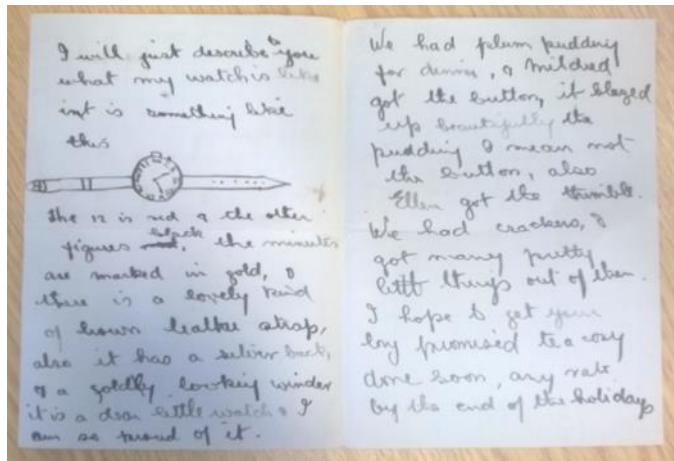 I will just describe to you
what my watch is like
it is something like
this
the 12 is red & the other
figures black, the minutes
are marked in gold, &
there is a lovely kind
of brown leather strap,
also it has a silver back,
& a goldly looking winder
it is a dear little watch & I
am so proud of it.
We had plum pudding
for dinner, & Mildred
got the button, it blazed
up beautifully the
pudding I mean not
the button, also
Ellen got the thimble.
We had crackers, &
got many pretty
little things out of them.
I hope to get your
long promised tea cosy
done soon, any rate
by the end of the holidays